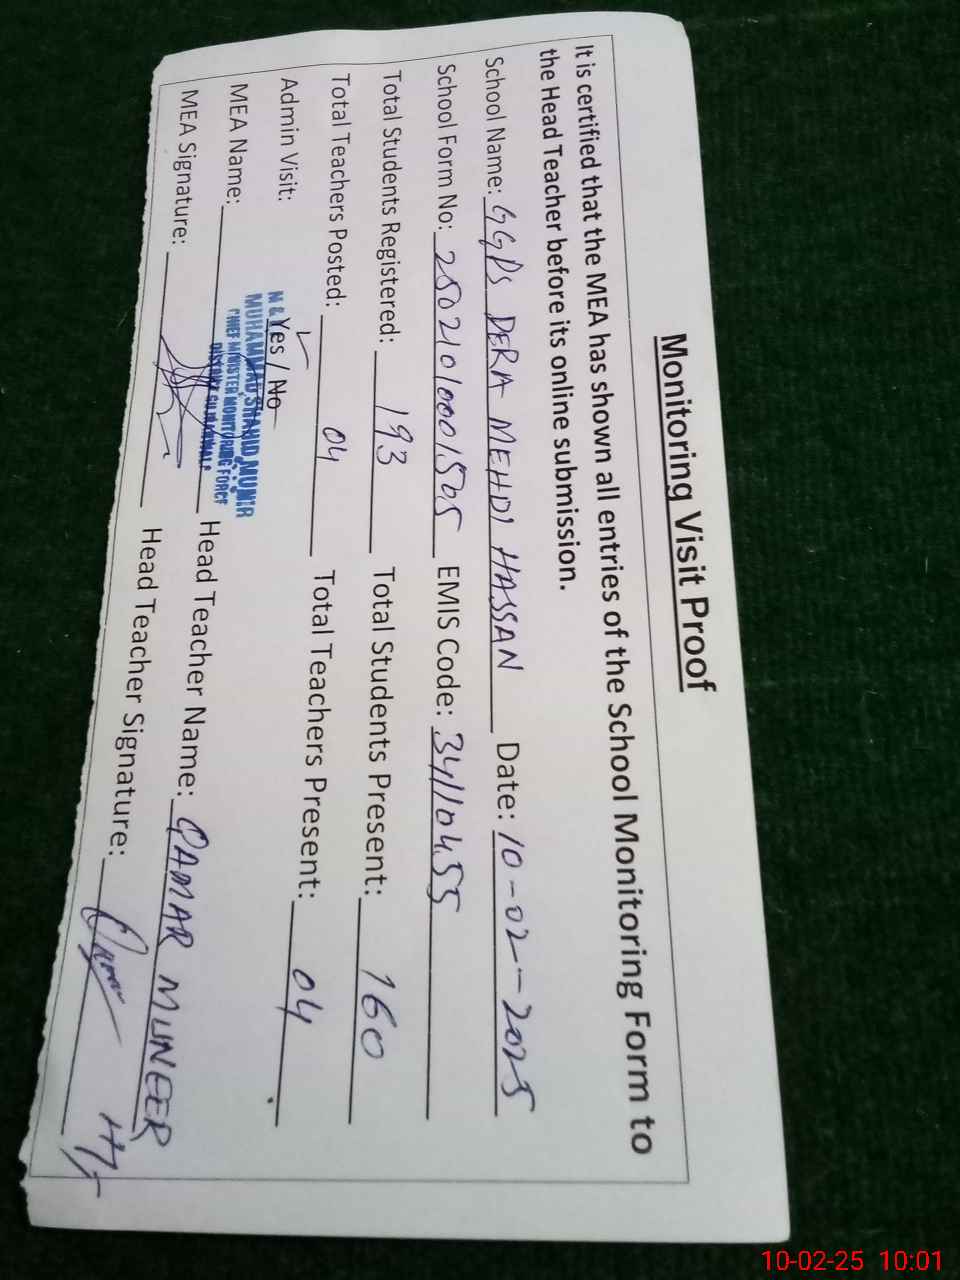 Monitoring Visit Proof
It is certified that the MEA has shown all entries of the School Monitoring Form to
the Head Teacher before its online submission.
School Name: GGPS DERA MEHDI HASSAN Date: 10-02-2025
School Form No: 25021010001505 EMIS Code: 34110455
Total Students Registered: 193 Total Students Present: 160
Total Teachers Posted: 04 Total Teachers Present: 04
Admin Visit: Yes / No
MEA Name: MUHAMMAD SHAHID MUNIR Head Teacher Name: QAMAR MUNEER
CHIEF MINISTER MONITORING FORCE
MEA Signature: Head Teacher Signature:
10-02-25 10:01